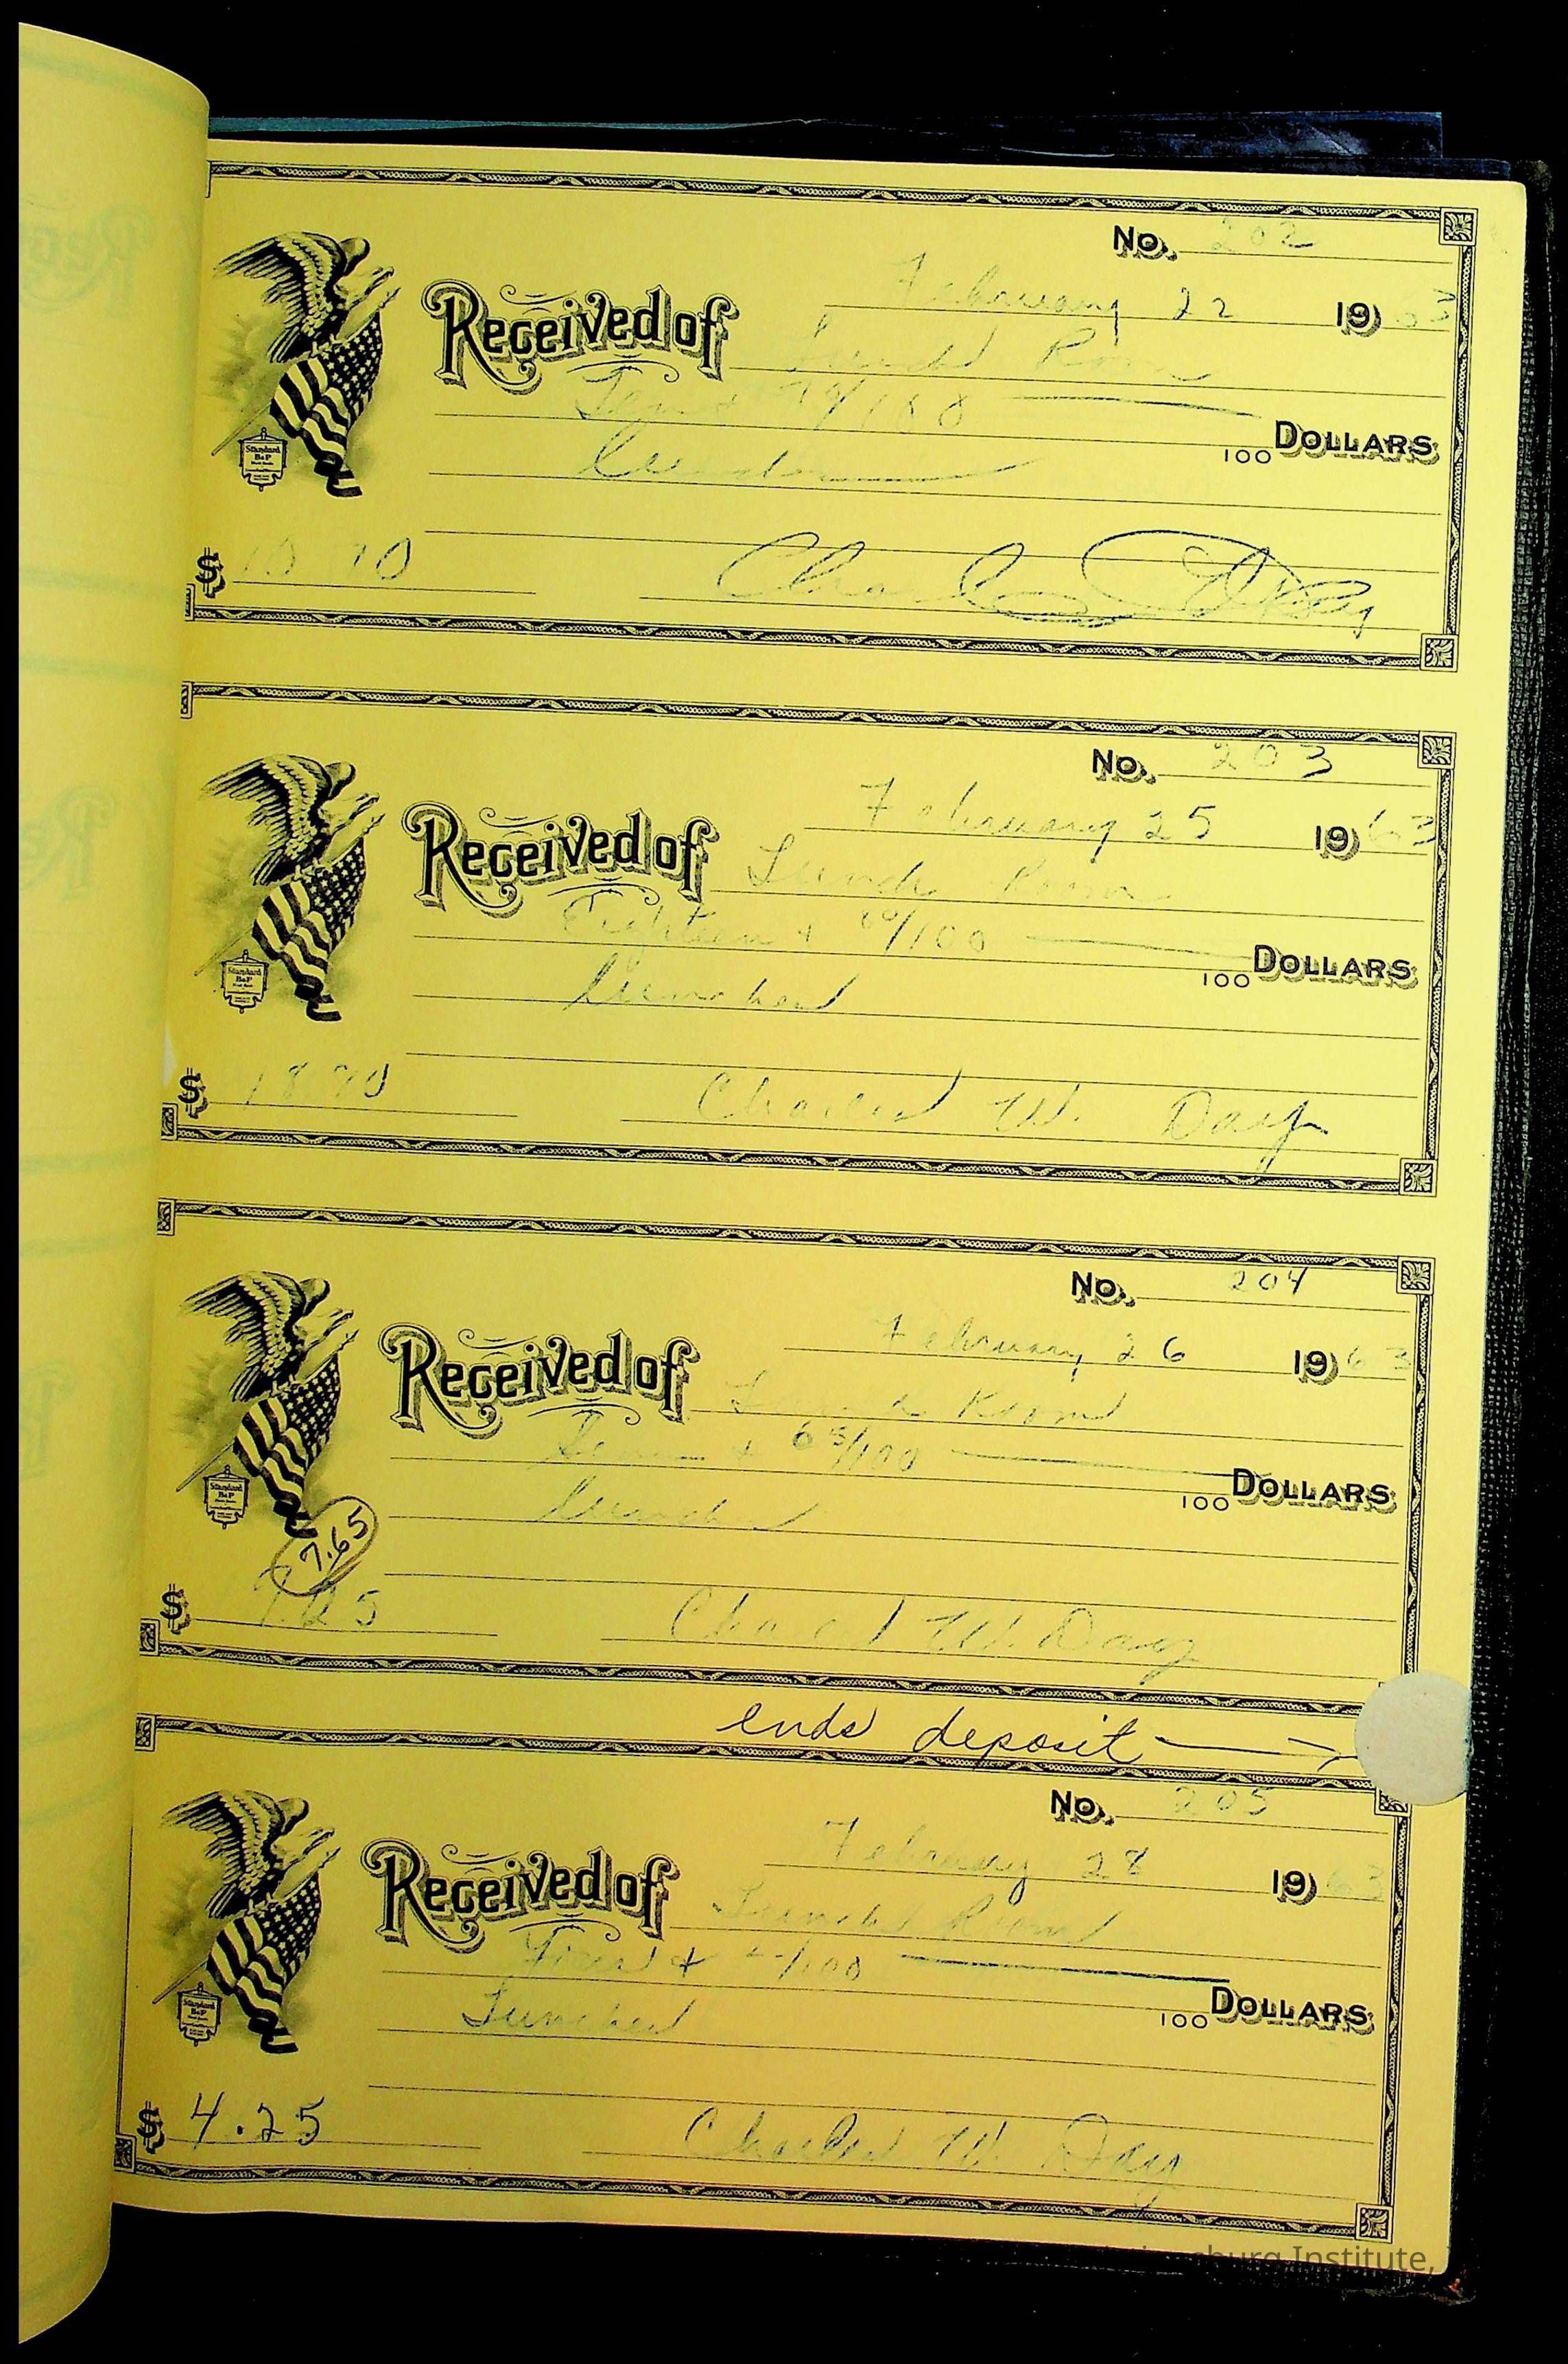 No. 202
February 22 1963
Received of Lunch Room
Ten + 70/100
100 DOLLARS
Lunch
$ 10 70
Charles
No. 203
February 25 1963
Received of Lunch Room
Eighteen +  /100
100 DOLLARS
Lunches
$ 18
Charles W. Day
No. 204
February 26 1963
Received of Lunch Room
+ 65/100
100 DOLLARS
Lunch
7.65
$
Charles W. Day
ends deposit
No. 205
February 28 1963
Received of Lunch Room
+ /100
100 DOLLARS
Lunches
$ 4.25
Charles W. Day
Standard
B&P
Institute,